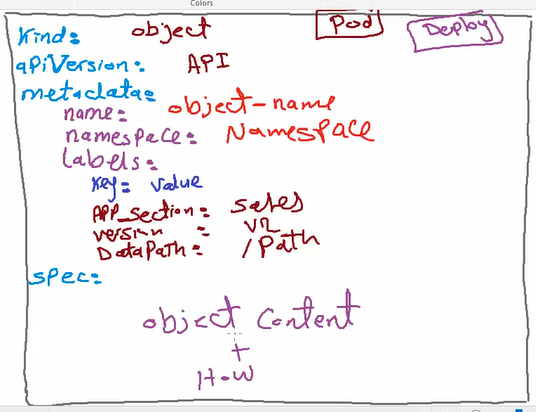 Colors
Pod
Deploy
kind: object
apiVersion: API
metadata:
name: object-name
namespace: Namespace
labels:
key: value
APP_section: sales
version : V2
DataPath: /Path
spec:
object Content
+
H-W